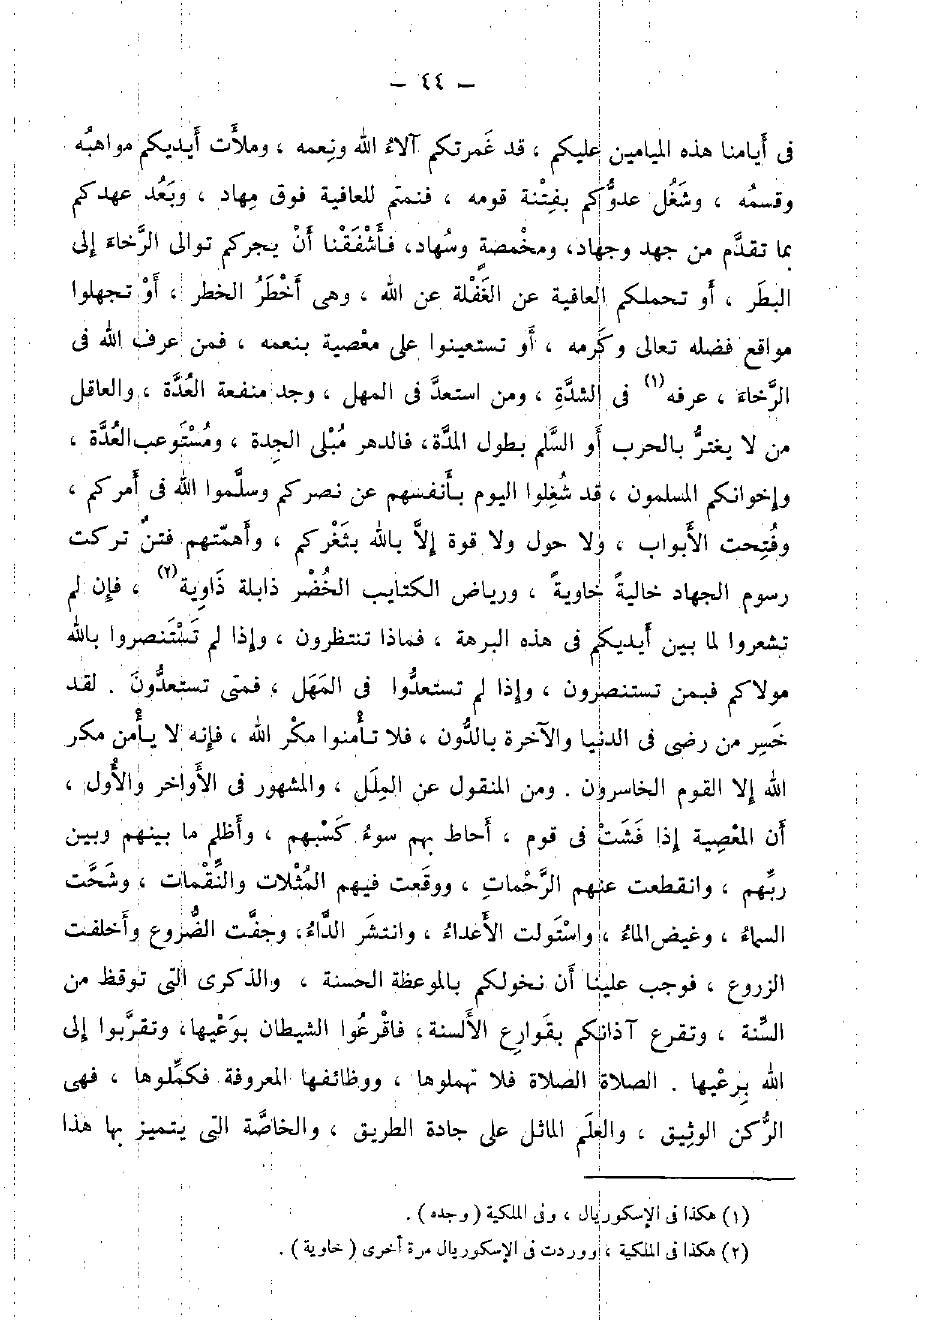 — ٤٤ —
فى أَيامنا هذه الميامين عليكم ، قد غَمرتكم آلاءُ الله ونِعمه ، وملأَت أَيديكم مواهبُه
وقسمُه ، وشَغُل عدوُّكم بفِتْنة قومه ، فنمتم للعافية فوق مِهاد ، وبَعُد عهدكم
بما تقدَّم من جهد وجهاد، ومخْمصةٍ وسُهاد، فأَشْفَقْنا أَنْ يجركم توالى الرَّخاءَ إلى
البطَر ، أَو تحملكم العافية عن الغَفْلة عن الله ، وهى أَخْطَرُ الخطر ، أَوْ تجهلوا
مواقع فضله تعالى وكَرمه ، أَو تستعينوا على معْصية بنعمه ، فمن عرف الله فى
الرَّخاءَ ، عرفه(١) فى الشدَّةِ ، ومن استعدَّ فى المهل ، وجد منفعة العُدَّة ، والعاقل
من لا يغترُّ بالحرب أَو السَّلم بطول المدَّة، فالدهر مُبْلى الجِدة ، ومُسْتَوعب العُدَّة ،
وإخوانكم المسلمون ، قد شُغِلوا اليوم بأَنفسهم عن نصركم وسلَّموا الله فى أَمركم ،
وفُتِحت الأَبواب ، ولا حول ولا قوة إلاَّ بالله بثَغْركم ، وأَهمّتهم فتنٌ تركت
رسوم الجهاد خاليةً خاويةً ، ورياض الكتايب الخُضْر ذابلة ذَاوِية(٢) ، فإن لم
تشعروا لما بين أَيديكم فى هذه البرهة ، فماذا تنتظرون ، وإذا لم تَسْتَنصروا بالله
مولاكم فبمن تستنصرون ، وإذا لم تستعدُّوا فى المَهَل ، فمتى تستعدُّونَ . لقد
خَسِر من رضى فى الدنيا والآخرة بالدُّون ، فلا تأْمنوا مكْر الله ، فإنه لا يأْمن مكر
الله إلا القوم الخاسرون . ومن المنقول عن المِلَل ، والمشهور فى الأَواخر والأُول ،
أَن المعْصِية إذا فَشَتْ فى قوم ، أَحاط بهم سوءُ كَسْبهم ، وأَظلم ما بينهم وبين
ربِّهم ، وانقطعت عنهم الرَّحْمات ، ووقَعت فيهم المُثْلات والنِّقْمات ، وشَحَّت
السماءُ ، وغيض الماءُ ، واسْتَولت الأَعداءُ ، وانتشَر الدَّاءُ، وجفَّت الضُّروع وأَخلفت
الزروع ، فوجب علينا أَن نخولكم بالموعظة الحسنة ، والذكرى التى توقظ من
السِّنة ، وتقرع آذانكم بقَوارِع الأَلسنة، فاقْرعُوا الشيطان بوَعْيها، وتقرَّبوا إلى
الله بِرعْيها . الصلاة الصلاة فلا تهملوها ، ووظائفها المعروفة فكمِّلوها ، فهى
الرُّكن الوثِيق ، والعلَم الماثل على جادة الطريق ، والخاصَّة التى يتميز بها هذا
(١) هكذا فى الإسكوريال ، وفى الملكية (وجده) .
(٢) هكذا فى الملكية ، ووردت فى الإسكوريال مرة أخرى (خاوية) .